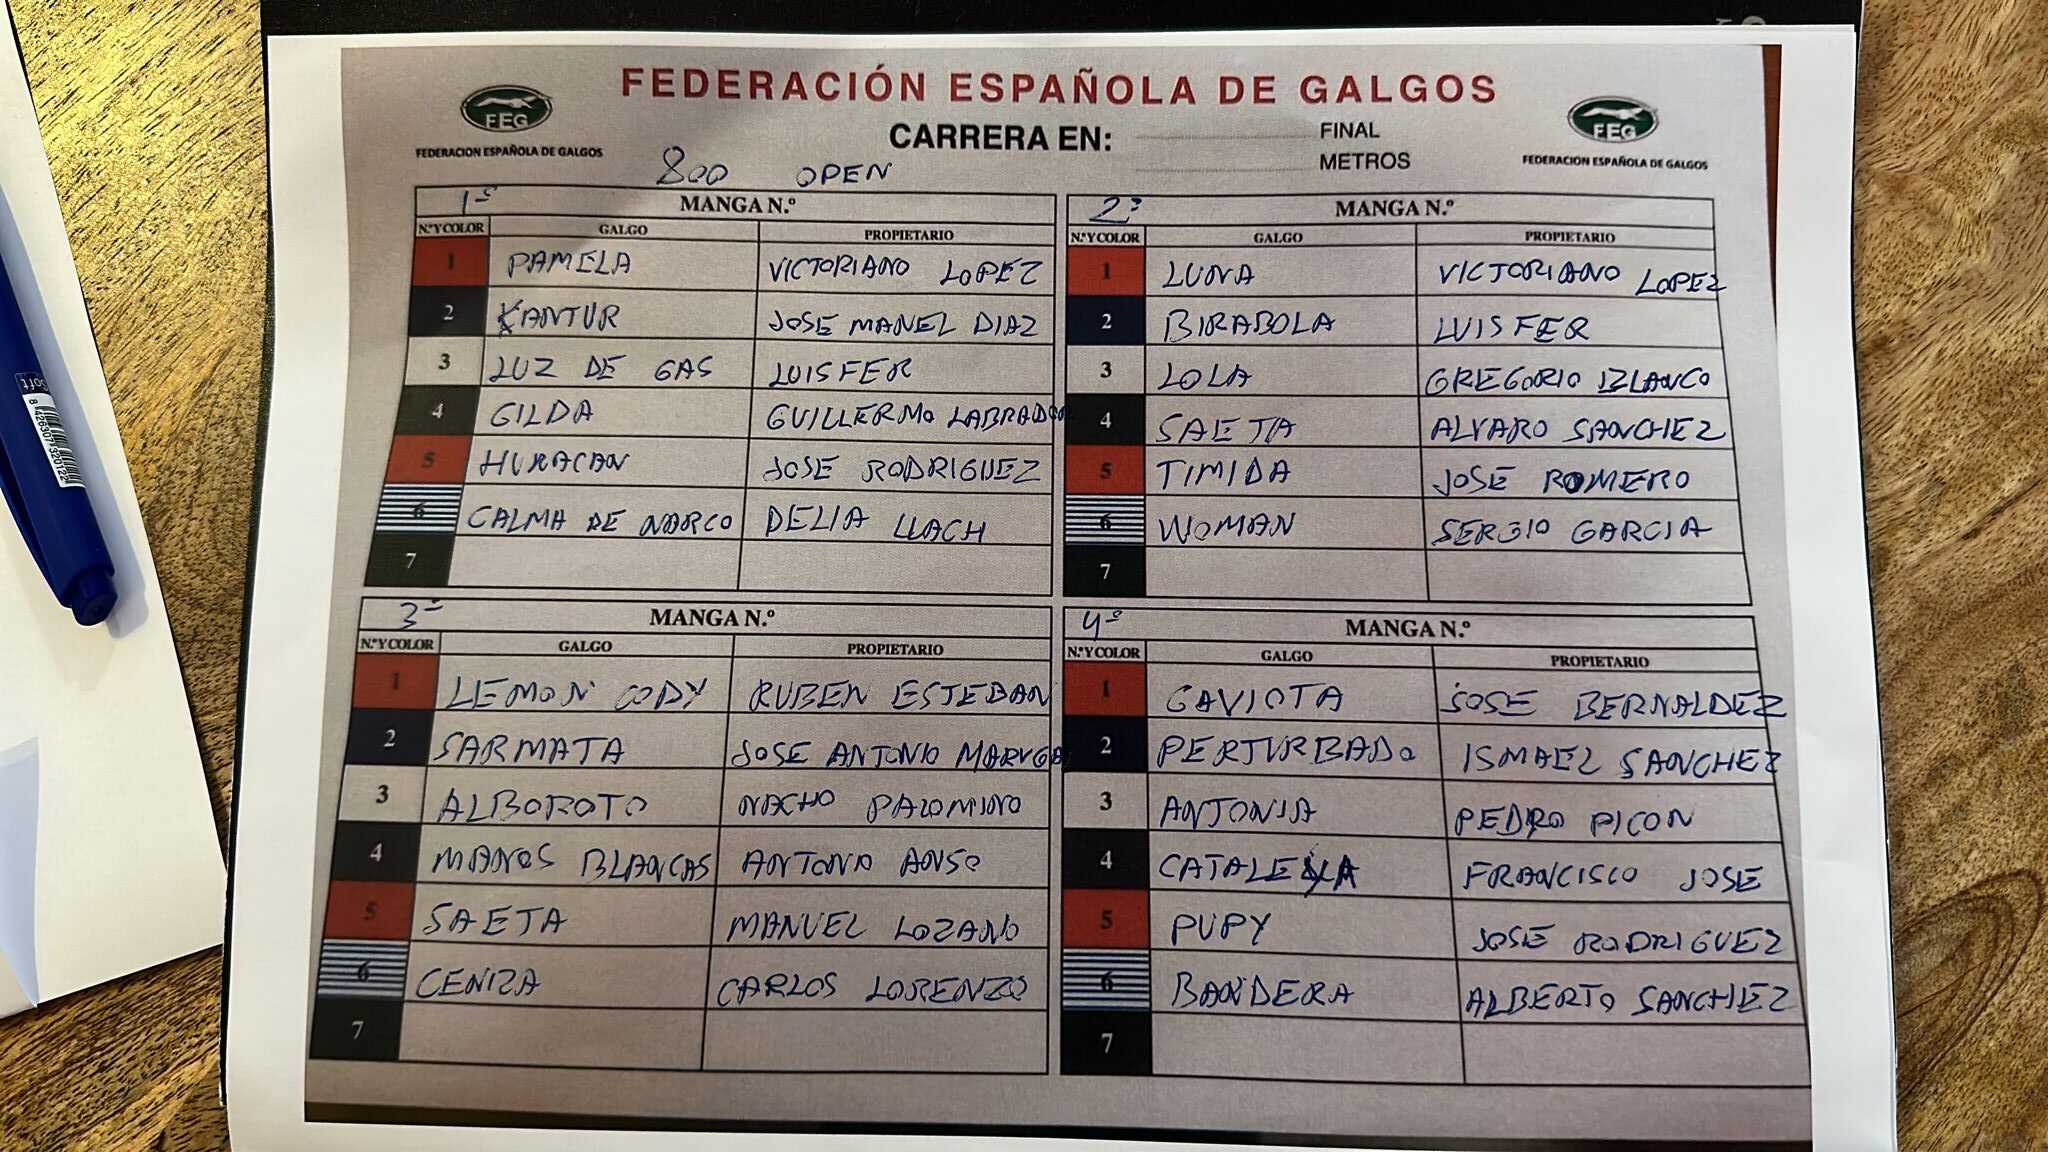 FEDERACIÓN ESPAÑOLA DE GALGOS
FEG
FEDERACION ESPAÑOLA DE GALGOS
CARRERA EN: FINAL
METROS
FEG
FEDERACION ESPAÑOLA DE GALGOS
800 OPEN
1º MANGA N.º
N.º Y COLOR GALGO PROPIETARIO
1 PAMELA VICTORIANO LOPEZ
2 KANTUR JOSE MANEL DIAZ
3 LUZ DE GAS LUISFER
4 GILDA GUILLERMO LABRADOR
5 HURACAN JOSE RODRIGUEZ
6 CALMA DE NARCO DELIA LLACH
7
2º MANGA N.º
N.º Y COLOR GALGO PROPIETARIO
1 LUNA VICTORIANO LOPEZ
2 BIRABOLA LUISFER
3 LOLA GREGORIO BLANCO
4 SAETA ALVARO SANCHEZ
5 TIMIDA JOSE ROMERO
6 WOMAN SERGIO GARCIA
7
3º MANGA N.º
N.º Y COLOR GALGO PROPIETARIO
1 LEMON CODY RUBEN ESTEBAN
2 SARMATA JOSE ANTONIO MARUGA
3 ALBOROTO NACHO PALOMINO
4 MANOS BLANCAS ANTONO ANSO
5 SAETA MANUEL LOZANO
6 CENIZA CARLOS LORENZO
7
4º MANGA N.º
N.º Y COLOR GALGO PROPIETARIO
1 GAVIOTA JOSE BERNALDEZ
2 PERTURBADO ISMAEL SANCHEZ
3 ANTONIA PEDRO PICON
4 CATALEYA FRANCISCO JOSE
5 PUPY JOSE RODRIGUEZ
6 BANDERA ALBERTO SANCHEZ
7
Soft
8 426307 320122